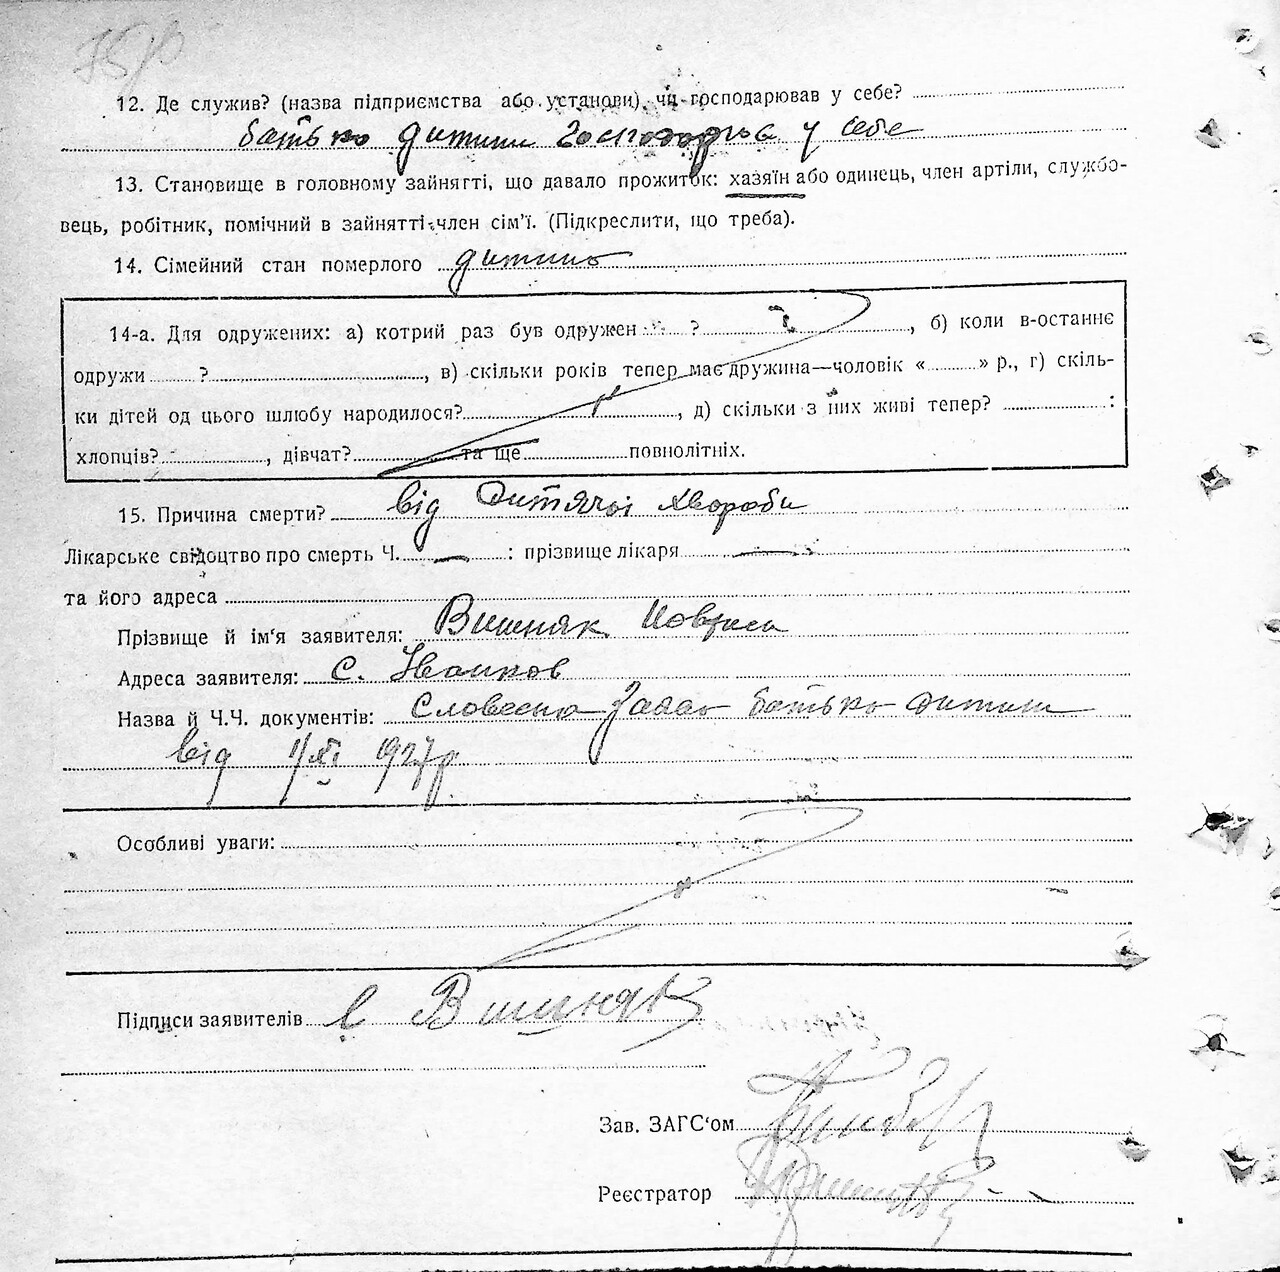 12. Де служив? (назва підприємства або установи), чи господарював у себе?
батько дитини господарює у себе
13. Становище в головному зайнятті, що давало прожиток: хазяїн або одинець, член артіли, службо-
вець, робітник, помічний в зайнятті член сім'ї. (Підкреслити, що треба).
14. Сімейний стан померлого дитина
14-а. Для одружених: а) котрий раз був одружен ?, б) коли в-останнє
одружи ?, в) скільки років тепер має дружина—чоловік « » р., г) скіль-
ки дітей од цього шлюбу народилося?, д) скільки з них живі тепер? :
хлопців?, дівчат? та ще повнолітніх.
15. Причина смерти? від дитячої хвороби
Лікарське свідоцтво про смерть Ч. — : прізвище лікаря —
та його адреса
Прізвище й ім'я заявителя: Вишняк
Адреса заявителя: с. Іванков
Назва й Ч.Ч. документів: Словесна заява батька дитини
від 1/XI 1927р.
Особливі уваги:
Підписи заявителів Вишняк
Зав. ЗАГС'ом
Реєстратор